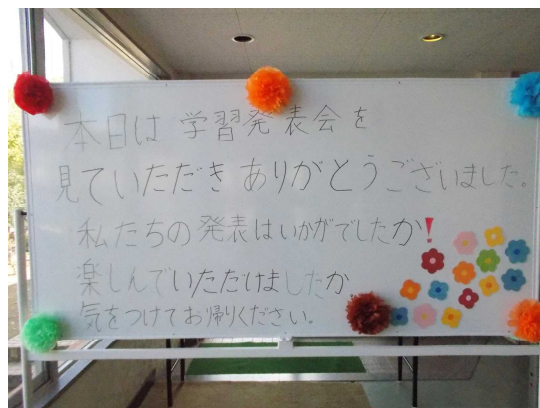 本日は 学習発表会を
見ていただき ありがとうございました。
私たちの発表はいかがでしたか!
楽しんでいただけましたか
気をつけてお帰りください。